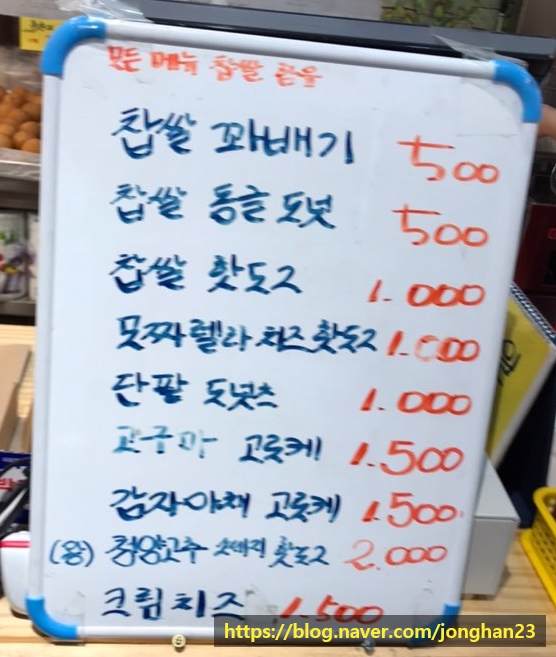 모든 메뉴 찹쌀 함유
찹쌀 꽈배기 500
찹쌀 동글 도넛 500
찹쌀 핫도그 1.000
못짜렐라 치즈 핫도그 1.000
단팥 도넛츠 1.000
고구마 고롯케 1.500
감자·야채 고롯케 1.500
(왕) 청양고추 소세지 핫도그 2.000
크림치즈 1.500
https://blog.naver.com/jonghan23